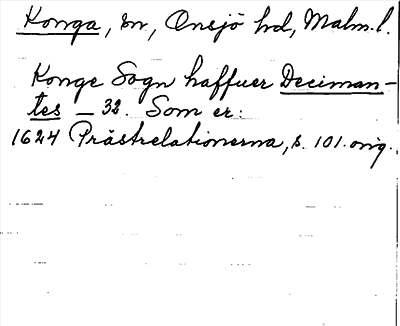 Konga, sn, Onsjö hd, Malm. l.
Konge Sogn haffuer Deciman-
tes – 32. Som er:
1624 Prästrelationerna, s. 101. orig.